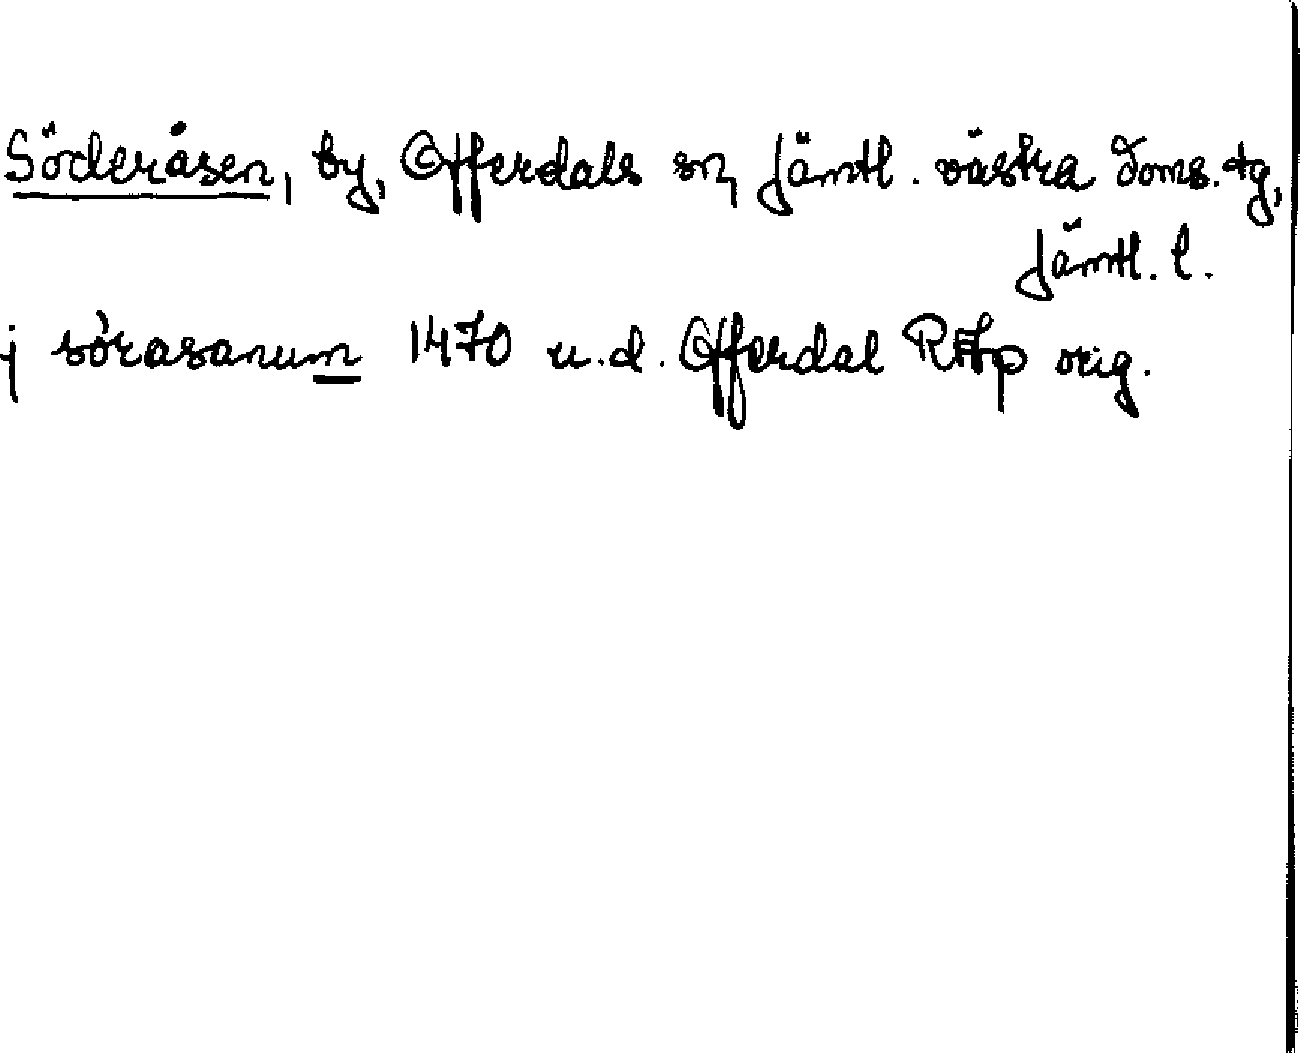 Söderåsen, by, Offerdals sn, Jämtl. västra doms. tg,
Jämtl. l.
j sörasanum 1470 u.d. Offerdal RAp orig.